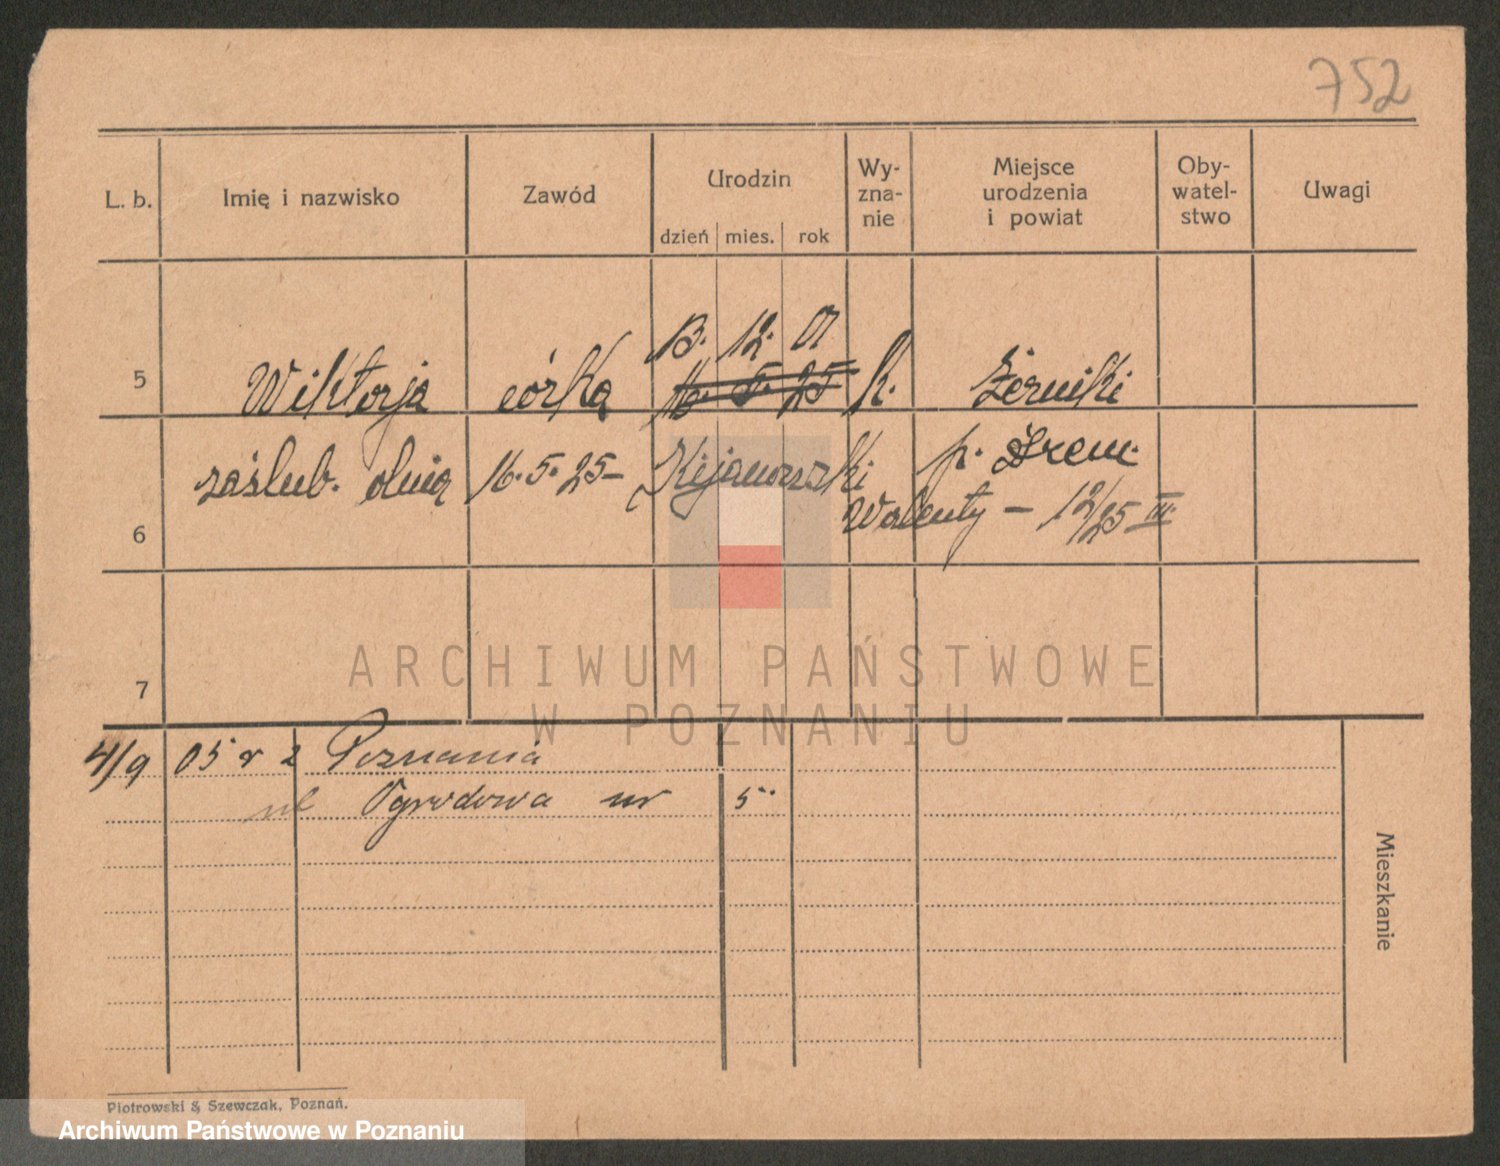 752
L. b. Imię i nazwisko Zawód Urodzin dzień mies. rok Wy-zna-nie Miejsce urodzenia i powiat Oby-watel-stwo Uwagi
13. 12. 01
5 Wiktorja córka 16. 5. 25 k. Żerniki
p. Śrem.
zaślub. dnia 16. 5. 25 – Kijanowski
Walenty – 12/25 III.
6
7
4/9 05 r z Poznania
ul Ogrodowa nr 5
Mieszkanie
Piotrowski & Szewczak, Poznań.
ARCHIWUM PAŃSTWOWE
W POZNANIU
Archiwum Państwowe w Poznaniu